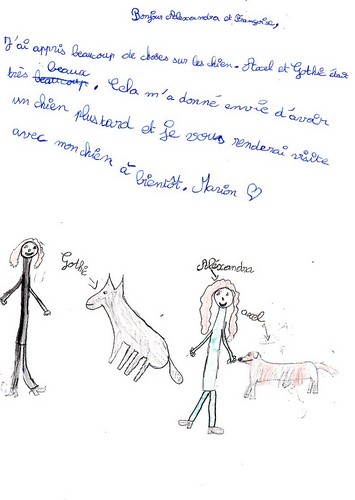 Bonjour Alexandra et Françoise,
J'ai appris beaucoup de choses sur les chien. Axel et Gothé était
très beaucoup beaux. Cela m'a donné envie d'avoir
un chien plus tard et je vous renderai visite
avec mon chien à bientôt. Marion ♡
Gothé
Aléxandra
axel